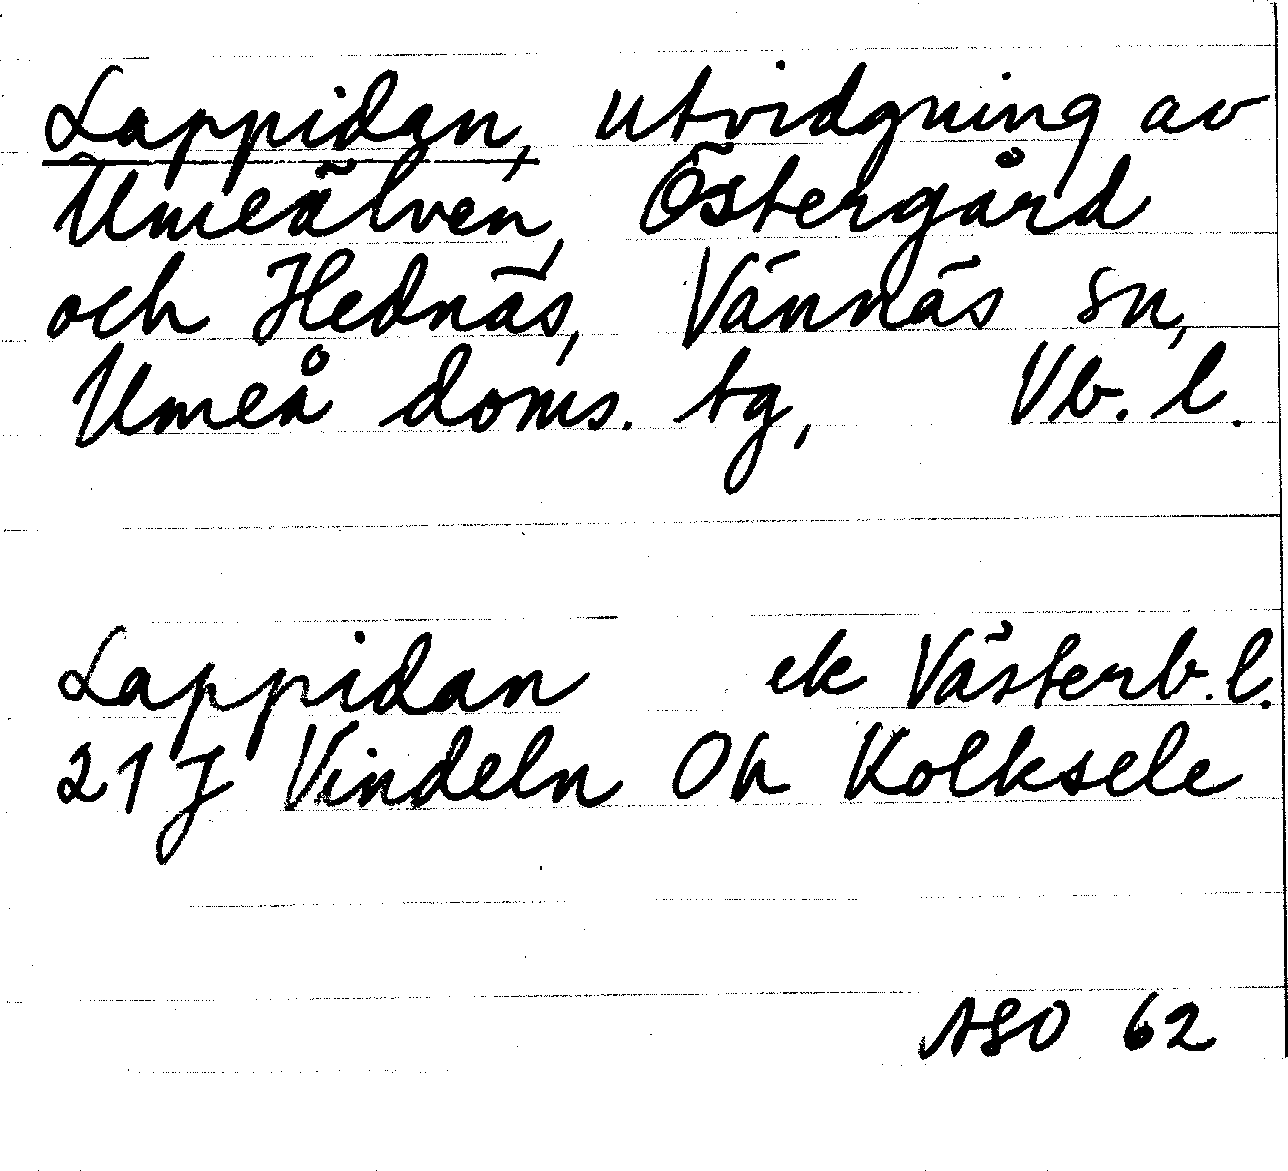 Lappidan, utvidgning av
Umeälven, Östergård
och Hednäs, Vännäs sn,
Umeå doms. tg, Vb. l.
Lappidan ek Västerb. l.
21 J Vindeln Ok Kolksele
ASO 62